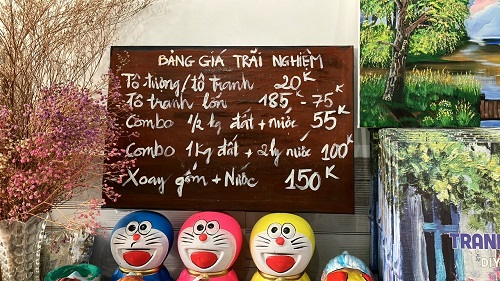 BẢNG GIÁ TRÃI NGHIỆM
Tô tượng/tô tranh 20K
Tô tranh lớn 185 - 75K
Combo 1/2 kg đất + nước 55K
Combo 1Kg đất + 2 ly nước 100K
Xoay gốm + Nước 150K
TRAN
DIY